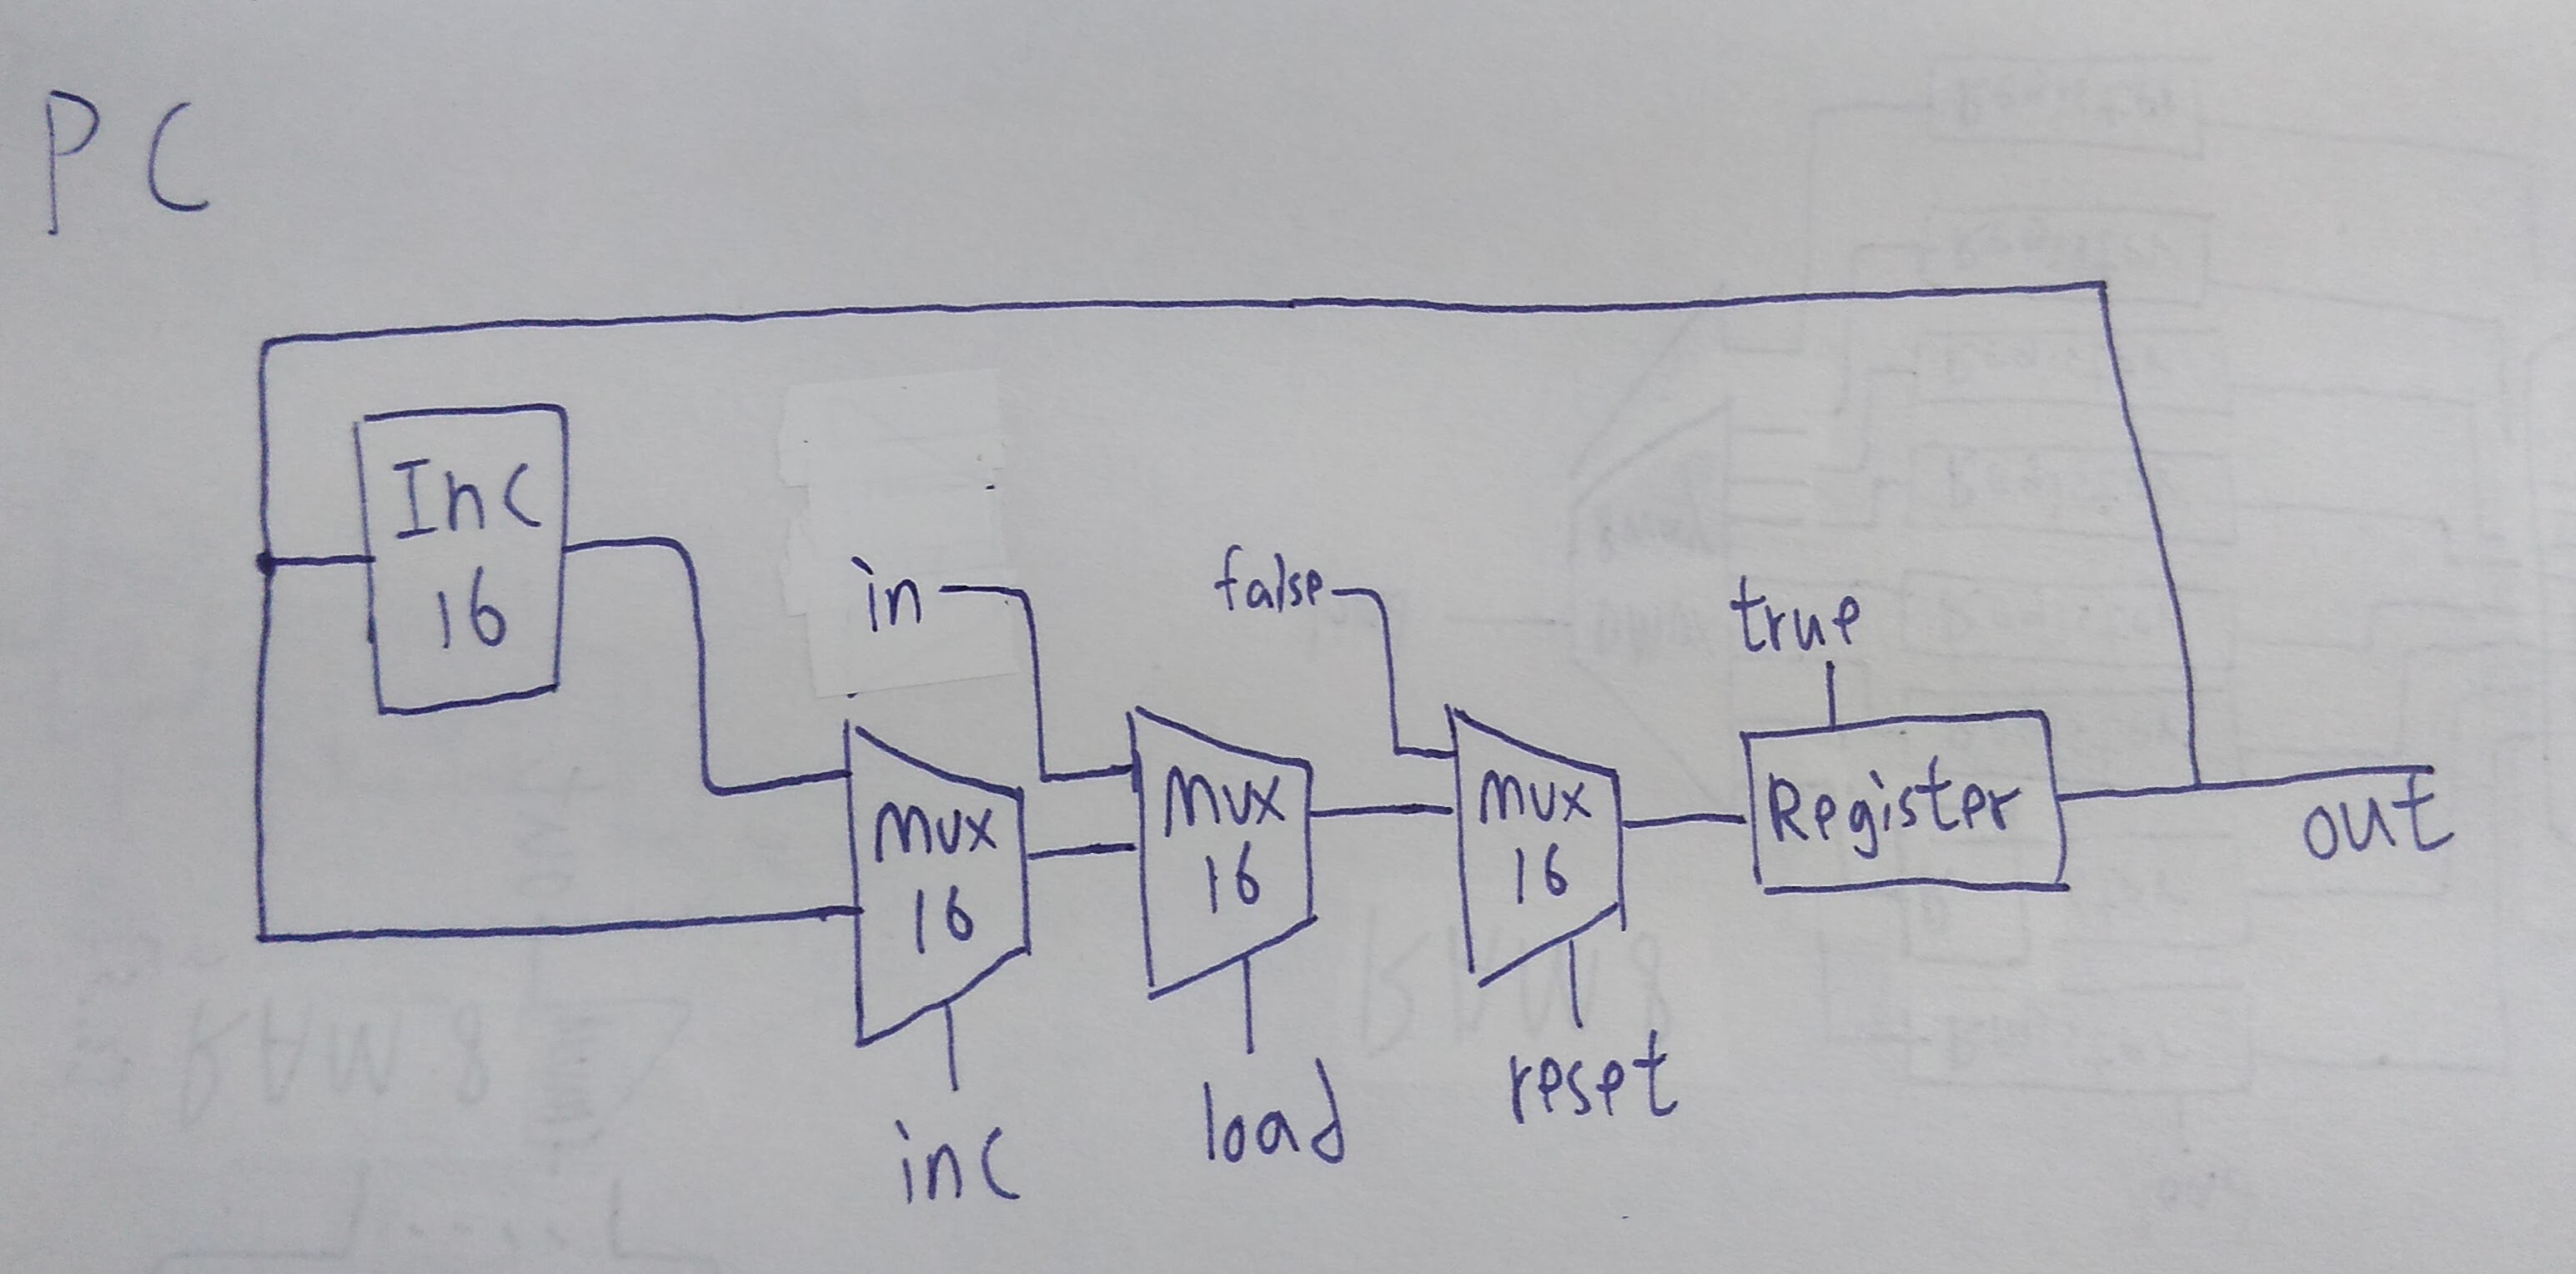 PC
Inc
16
in
false
true
Mux
16
Mux
16
Mux
16
Register
out
inc
load
reset
RAM 8
RAM 8